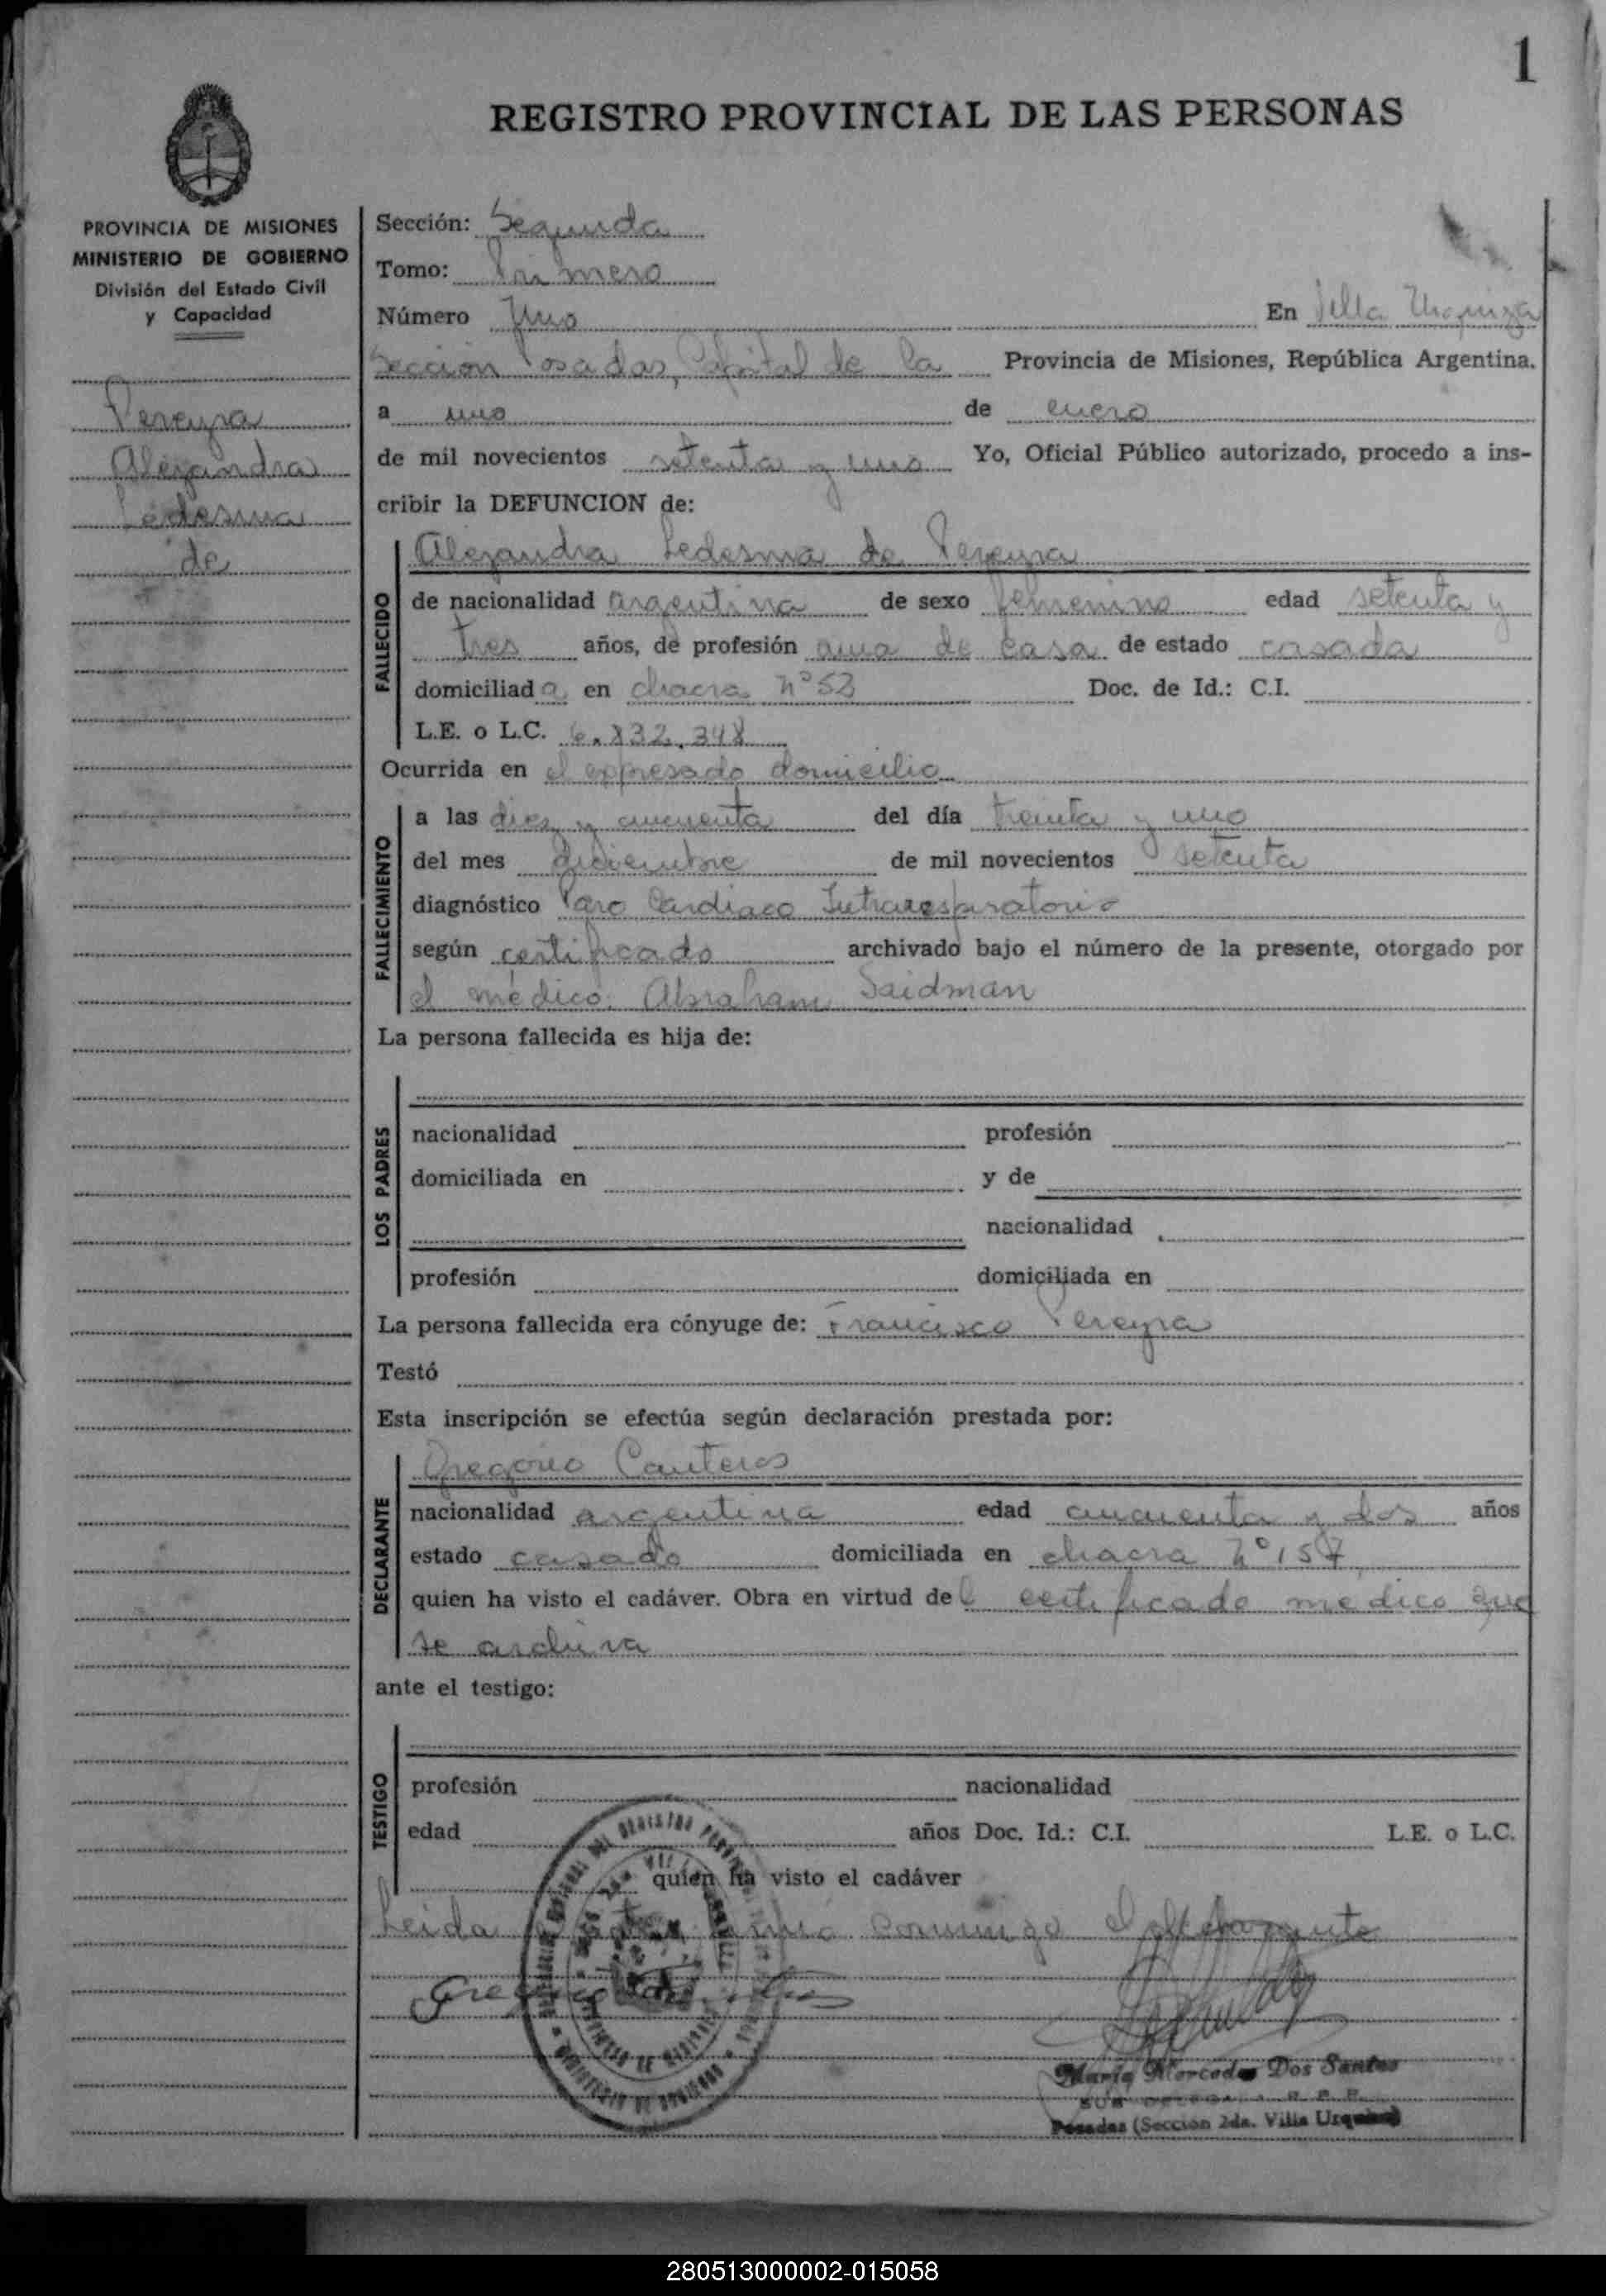 1
REGISTRO PROVINCIAL DE LAS PERSONAS
PROVINCIA DE MISIONES
MINISTERIO DE GOBIERNO
División del Estado Civil
y Capacidad
Pereyra
Alejandra
Ledesma
de
Sección: Segunda
Tomo: Primero
Número Uno En Villa Urquiza
Sección Posadas, Capital de la Provincia de Misiones, República Argentina.
a uno de enero
de mil novecientos setenta y uno Yo, Oficial Público autorizado, procedo a ins-
cribir la DEFUNCION de:
FALLECIDO
Alejandra Ledesma de Pereyra
de nacionalidad argentina de sexo femenino edad setenta y
tres años, de profesión ama de casa de estado casada
domiciliada en chacra nº 53 Doc. de Id.: C.I.
L.E. o L.C. 6.832.348
Ocurrida en el expresado domicilio
FALLECIMIENTO
a las diez y cincuenta del día treinta y uno
del mes diciembre de mil novecientos setenta
diagnóstico Paro Cardiaco
según certificado archivado bajo el número de la presente, otorgado por
el médico Abraham Saidman
La persona fallecida es hija de:
LOS PADRES
nacionalidad profesión
domiciliada en y de
nacionalidad
profesión domiciliada en
La persona fallecida era cónyuge de: Francisco Pereyra
Testó
Esta inscripción se efectúa según declaración prestada por:
DECLARANTE
Gregorio Canteros
nacionalidad argentina edad cincuenta y dos años
estado casado domiciliada en chacra nº 157
quien ha visto el cadáver. Obra en virtud del certificado medico que
se archiva
ante el testigo:
TESTIGO
profesión nacionalidad
edad años Doc. Id.: C.I. L.E. o L.C.
quien ha visto el cadáver
Leida el acta firmó conmigo el declarante
María Mercedes Dos Santos
Posadas (Sección 2da. Villa Urquiza)
280513000002-015058